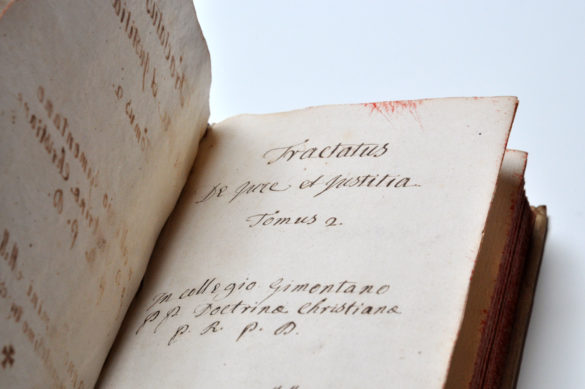 Tractatus
De jure et justitia.
Tomus 2.
In collegio Gimontano
pp Doctrinæ Christianæ
p. R. p. D.